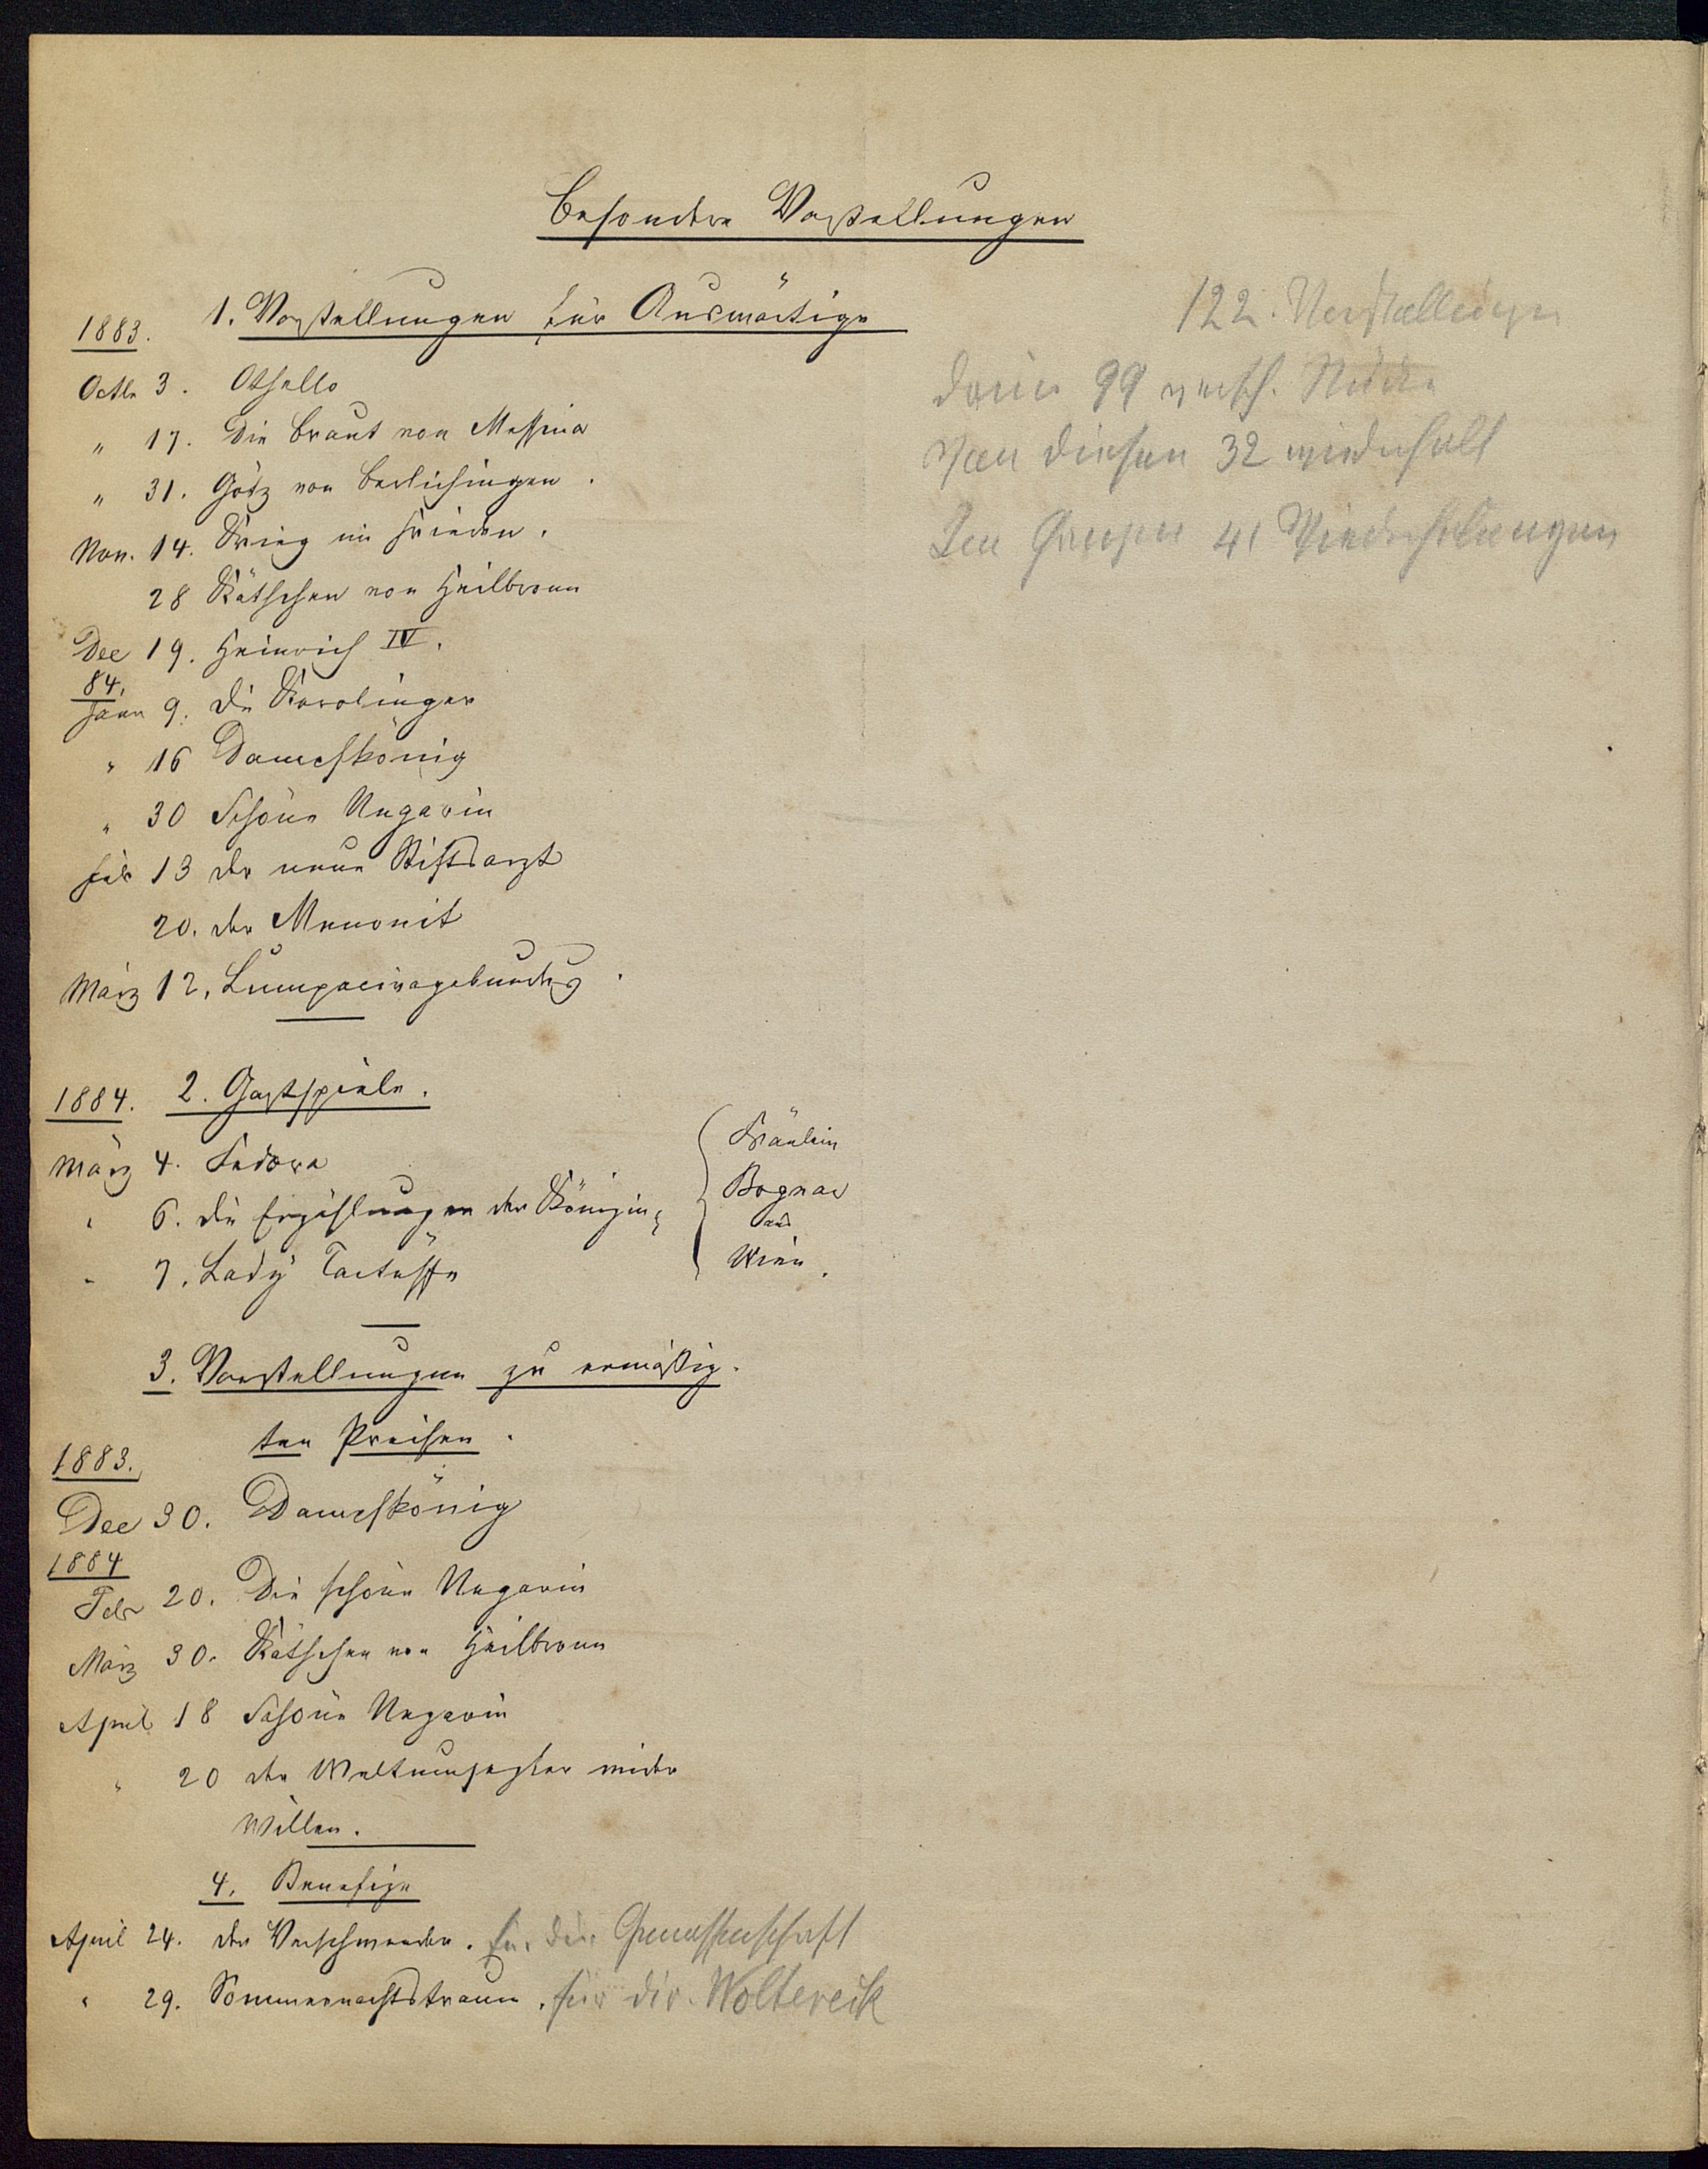 Besondere Vorstellungen
1883. 1. Vorstellungen für Auswärtige
Octbr 3. Othello
" 17. Die Braut von Messina
" 31. Götz von Berlichingen.
Nov. 14. Krieg im Frieden.
28 Käthchen von Heilbronn
Dec 19. Heinrich IV.
84.
Jann 9. Die Karolinger
" 16 Dampfkönig
" 30 Schöne Ungarin
Feb 13 der neue Stiftsarzt
20. der Menonit
März 12. Lumpacivagabundus.
1884. 2. Gastspiele.
März 4. Fedora
" 6. die Erzählungen der Königin
" 7. Lady Tartüffe
Fräulein
Bognar
aus
Wien.
3. Vorstellungen zu ermäßig-
ten Preisen.
1883.
Dec 30. Dampfkönig
1884
Febr 20. Die schöne Ungarin
März 30. Käthchen von Heilbronn
April 18 Schöne Ungarin
" 20 der Weltumsegler wider
Willen.
4. Benefize
April 24. der Verschwender. für die Genossenschaft
" 29. Sommernachtstraum. für Dir. Woltereck
122. Vorstellungen
99 versch. Stücke
Von diesen 32 wiederholt
Im Ganzen 41 Wiederholungen